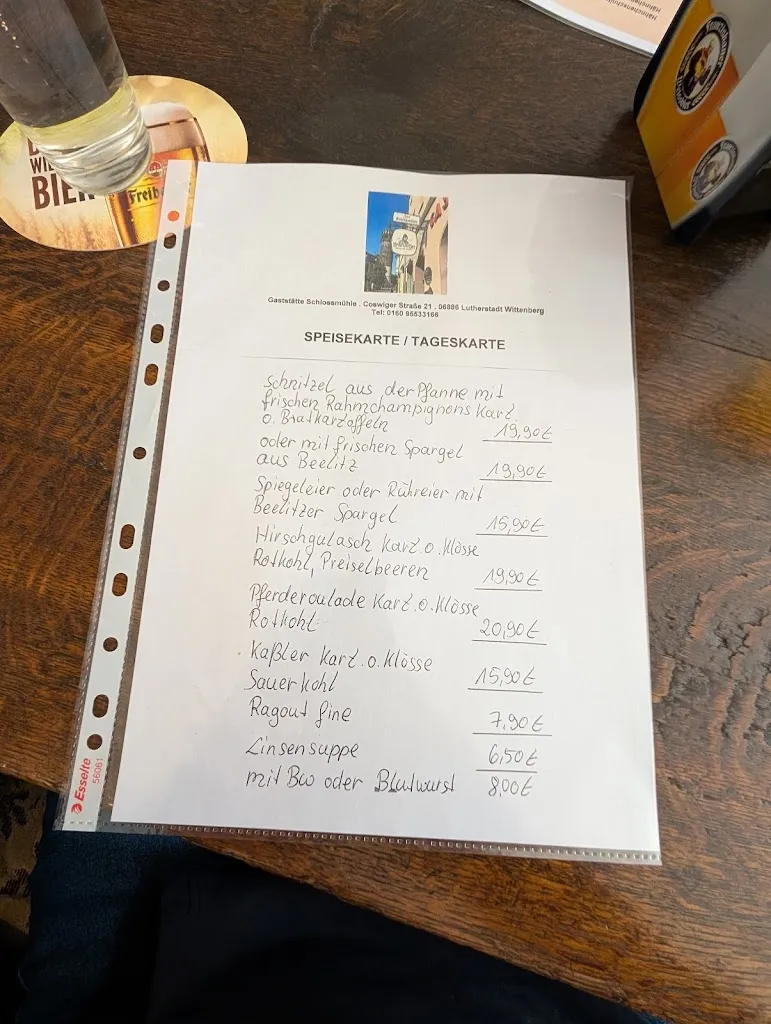 WIE
BIER
Freib
Gaststätte Schlossmühle . Coswiger Straße 21 . 06886 Lutherstadt Wittenberg
Tel: 0160 95533166
SPEISEKARTE / TAGESKARTE
Schnitzel aus der Pfanne mit
frischen Rahmchampignons Kart.
o. Bratkartoffeln 19,90€
oder mit frischen Spargel
aus Beelitz 19,90€
Spiegeleier oder Rühreier mit
Beelitzer Spargel 15,90€
Hirschgulasch Kart. o. Klösse
Rotkohl, Preiselbeeren 19,90€
Pferderoulade Kart. o. Klösse
Rotkohl 20,90€
Kaßler Kart. o. Klösse
Sauerkohl 15,90€
Ragout fine 7,90€
Linsensuppe 6,50€
mit Bw oder Blutwurst 8,00€
Esselte
56061